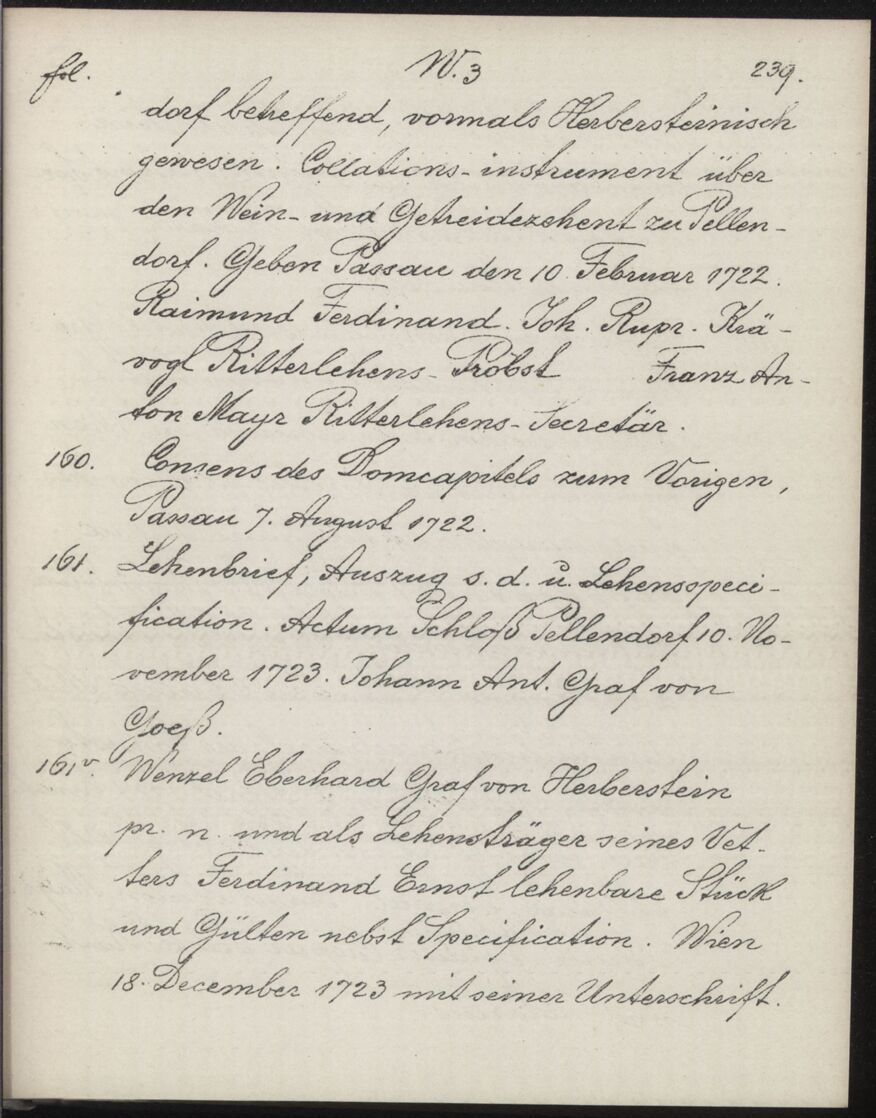 fol. W. 3 239.
dorf betreffend, vormals Herbersteinisch
gewesen. Collations-instrument über
den Wein- und Getreidezehent zu Pellen-
dorf. Geben Passau den 10. Februar 1722.
Raimund Ferdinand. Joh. Rupr. Krä-
vogl Ritterlehens-Probst Franz An-
ton Mayr Ritterlehens-Secretär.
160. Consens des Domcapitels zum Vorigen,
Passau 7. August 1722.
161. Lehenbrief, Auszug s. d. u. Lehensspeci-
fication. Actum Schloß Pellendorf 10. No-
vember 1723. Johann Ant. Graf von
Goeß.
161v. Wenzel Eberhard Graf von Herberstein
pr. n. und als Lehensträger seines Vet-
ters Ferdinand Ernst lehenbare Stück
und Gülten nebst Specification. Wien
18. December 1723 mit seiner Unterschrift.